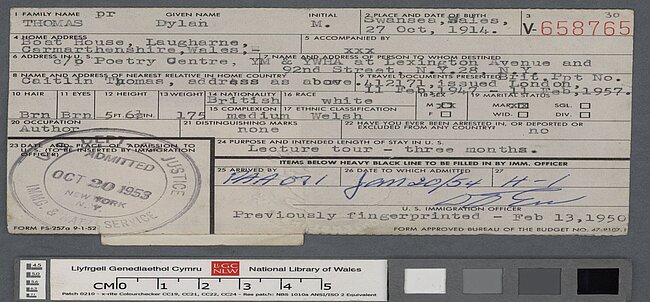 1 FAMILY NAME pr GIVEN NAME INITIAL 2 PLACE AND DATE OF BIRTH 3 30
THOMAS Dylan M. Swansea, Wales,
27 Oct, 1914. V-658765
4 HOME ADDRESS 5 ACCOMPANIED BY
Boat House, Laugharne,
Carmarthenshire, Wales,- xxx
6 ADDRESS IN U.S. 7 NAME AND ADDRESS OF PERSON TO WHOM DESTINED
c/o Poetry Centre, YM & YWHA at Lexington Avenue and
92nd Street, N.Y. 28, N.Y.
8 NAME AND ADDRESS OF NEAREST RELATIVE IN HOME COUNTRY 9 TRAVEL DOCUMENTS PRESENTED Brit. Ppt No.
Caitlin Thomas address as above issued London,
1957.
10 HAIR 11 EYES 12 HEIGHT 13 WEIGHT 14 NATIONALITY 16 RACE 18 SEX 19 MARITAL STATUS
British white M XX MAR XX SGL.
15 COMPLEXION 17 ETHNIC CLASSIFICATION
Brn Brn 5 FT. 6½ IN. 175 medium Welsh F WID. DIV.
20 OCCUPATION 21 DISTINGUISHING MARKS 22 HAVE YOU EVER BEEN ARRESTED IN, OR DEPORTED OR EXCLUDED FROM ANY COUNTRY?
Author none no
23 DATE AND PLACE OF ADMISSION TO U.S. (TO BE INSERTED BY IMMIGRATION OFFICER) 24 PURPOSE AND INTENDED LENGTH OF STAY IN U.S.
Lecture tour - three months.
DEPT JUSTICE
ADMITTED
OCT 20 1953
NEW YORK
N.Y.
IMMIG. & NAT'Z SERVICE
ITEMS BELOW HEAVY BLACK LINE TO BE FILLED IN BY IMM. OFFICER
25 ARRIVED BY 26 DATE TO WHICH ADMITTED 27
Jan 20/54 H-1
U. S. IMMIGRATION OFFICER
Previously fingerprinted - Feb 13, 1950
FORM FS-257a 9-1-52 FORM APPROVED BUREAU OF THE BUDGET NO. 47-R107.1
Llyfrgell Genedlaethol Cymru LLGC NLW National Library of Wales
CM 0 1 2 3 4 5